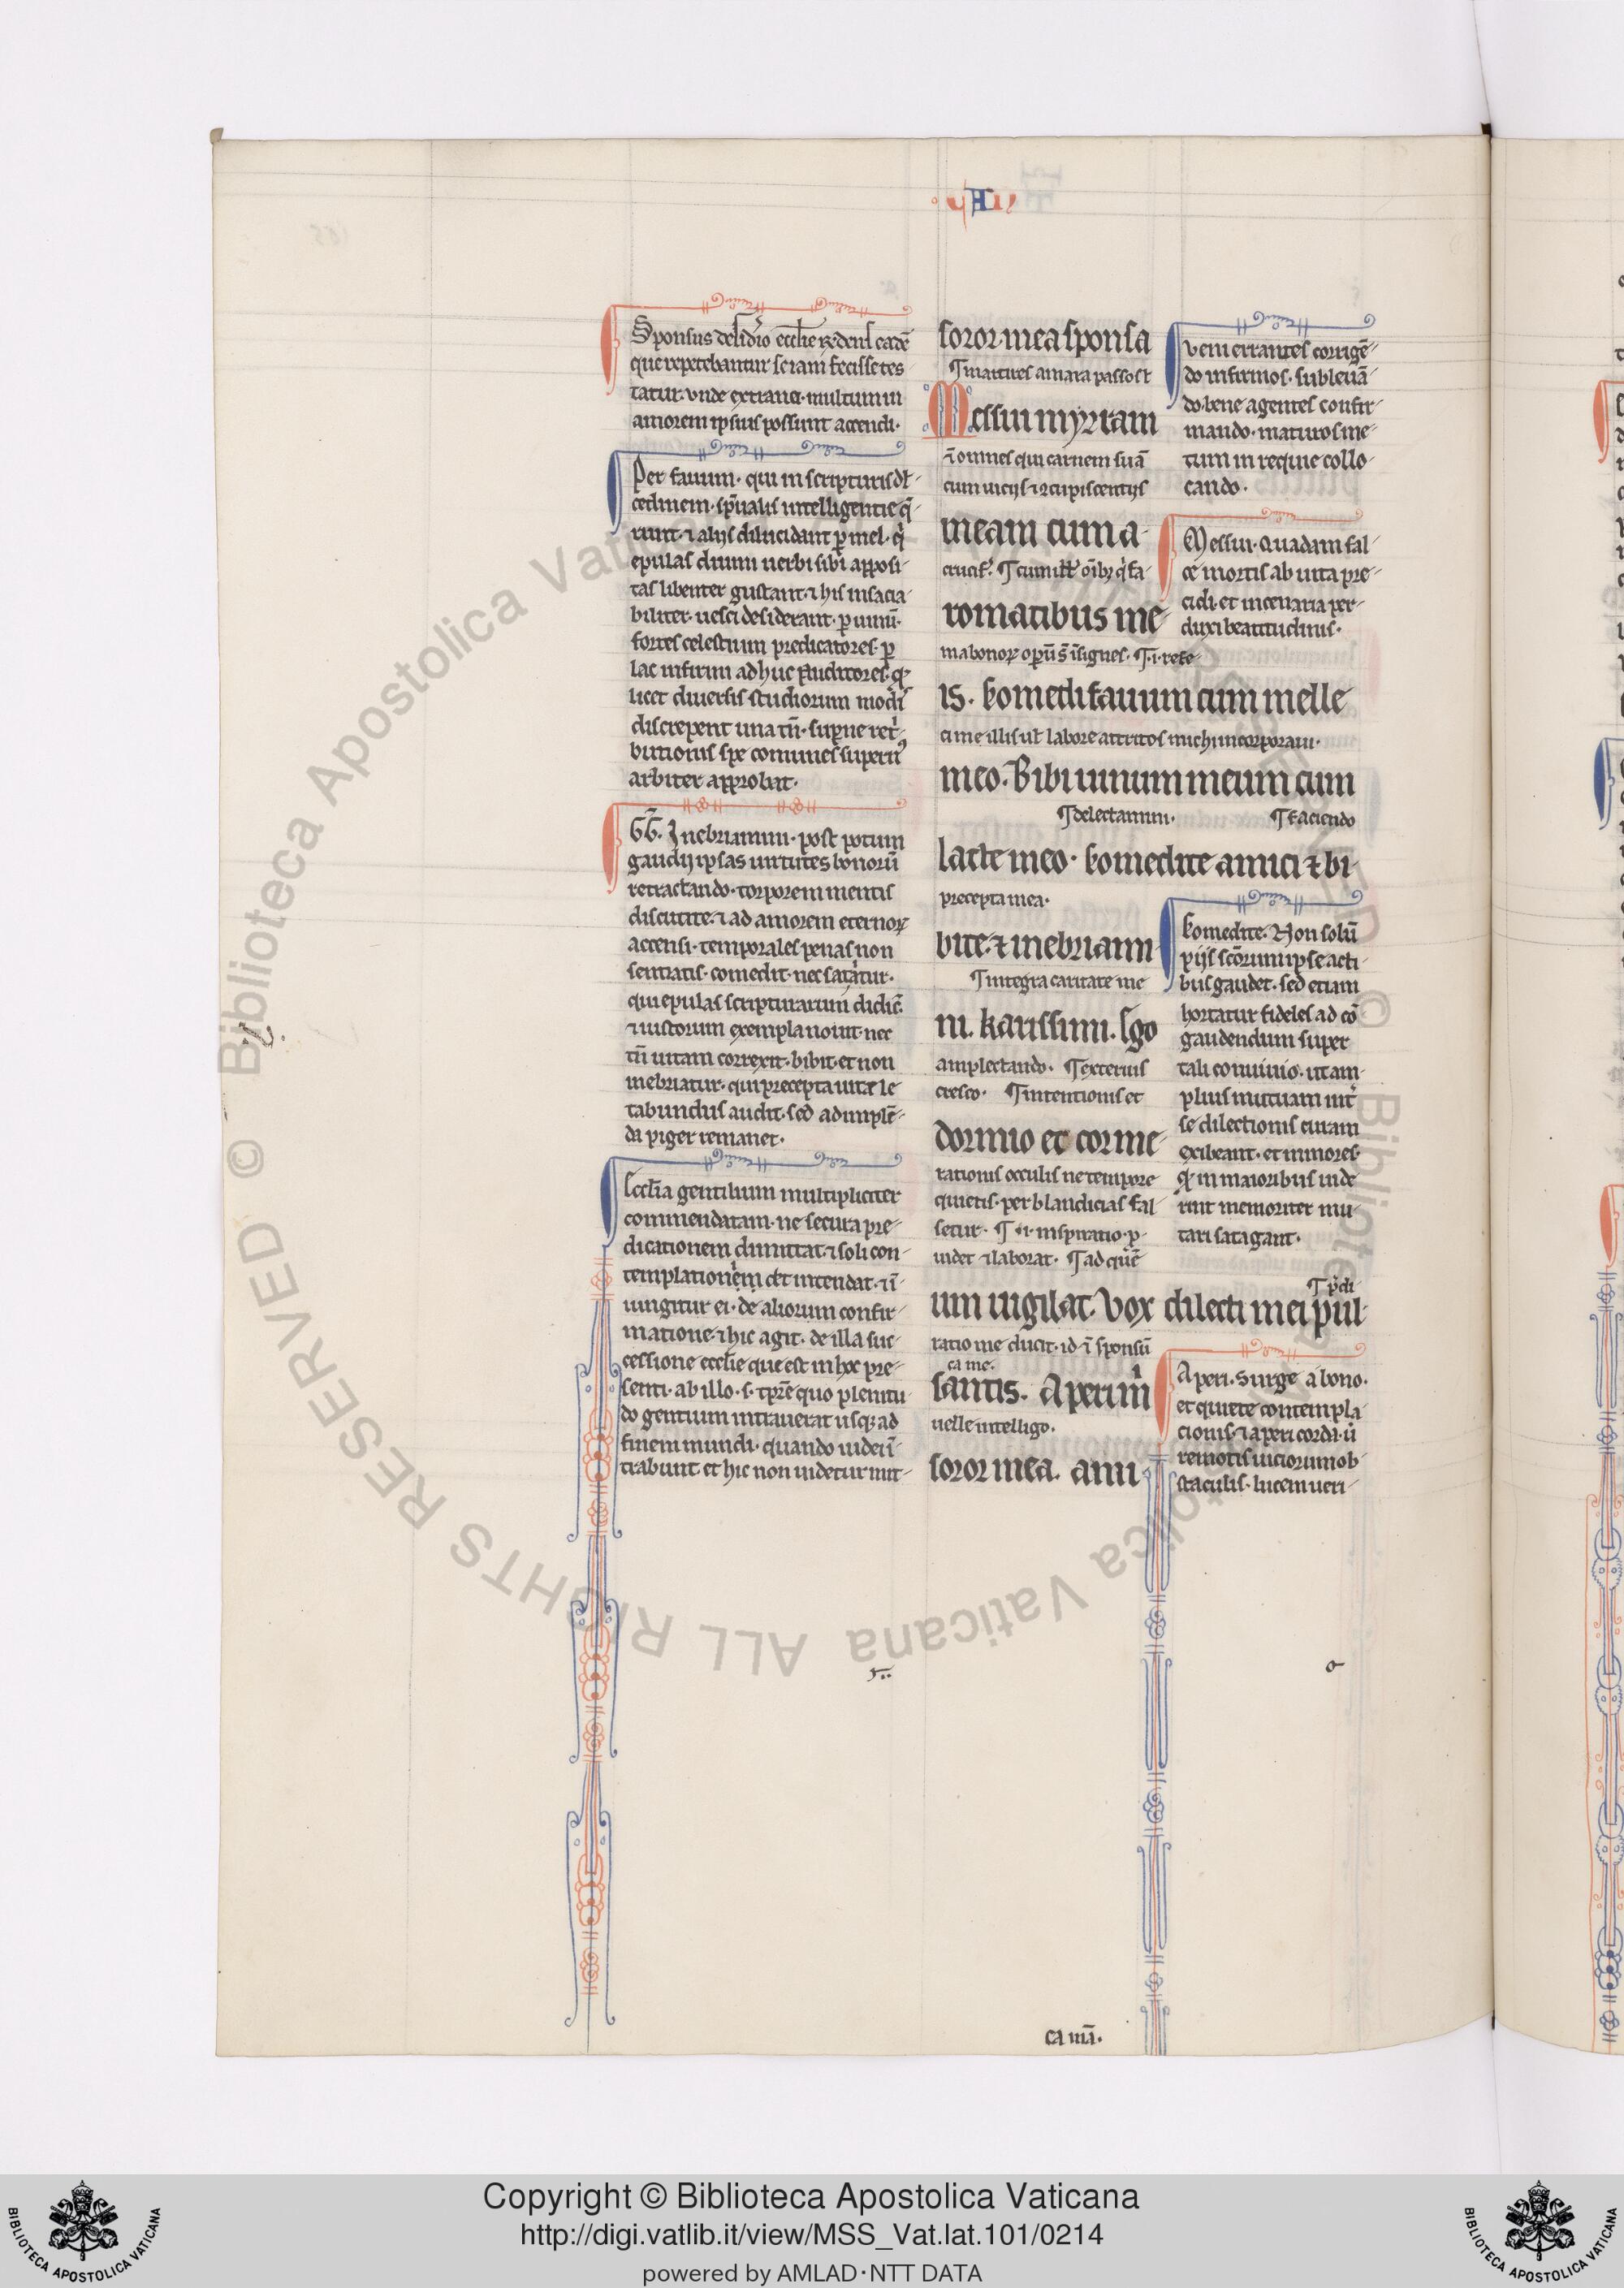 Sponsus desid'io eccl'ie r̄ndens eadē
que repetebantur se iam fecisse tes
tatur. vnde extranei multum in
amorem ipsius possunt accendi.
Per fauum. qui in scripturis dl'
cedinem. sp̄ualis intelligentie q̄
runt. ⁊ aliis dilucidant ꝑ mel. q'
epulas diuini uerbi sibi apposi-
tas libenter gustant ⁊ his insacia-
biliter uesci desiderant. ꝑ uinū.
fortes celestium predicatores. ꝑ
lac infirmi adhuc auditores. q̄
licet diuersis studiorum modis
discrepent una tn̄. superne ret'-
butionis spe comunes supern'
arbiter approbat.
GG. Inebriamini. post potum
gaudij ipsas uirtutes bonorū
retractando. torporem mentis
discutite. ⁊ ad amorem eternoꝝ
accensi. temporales penas non
sentiatis. comedit nec satiatur.
qui epulas scripturarum didic̄.
⁊ iustorum exempla nouit. nec
tn̄ uitam correxit. bibit. et non
inebriatur. qui precepta uite le
tabundus audit. sed ad implē-
da piger remanet.
Eccl'ia gentilium multipliciter
commendatam. ne secura pre-
dicationem dimittat. ⁊ soli con-
templationem det intendat. ⁊ ī-
iungitur ei. de aliorum confir-
matione. ⁊ hic agit. de illa suc-
cessione eccl'ie que est in hoc pre-
senti. ab illo. s. tp̄re quo plenitu
do gentium intrauerat usq; ad
finem mundi. quando iudei ī-
trabunt et hic non uidetur mit-
soror mea sponsa
¶martires amara passos
Messui myrram
⁊ omnes qui carnem suā
cum uiciis ⁊ ꝯcupiscentiis
meam cum a-
crucif'. ¶cum illis oībꝫ q' fa-
romatibus me-
ma bonoꝝ opūm s̄ īsignes. ¶.i. refe-
is. Comedi fauum cum melle
ci me illis uel labore attritos michi incorporaui.
meo. Bibi uinum meum cum
¶delectamini. ¶faciendo
lacte meo. Comedite amici ⁊ bi-
precepta mea.
bite. ⁊ inebriami
¶integra caritate me
ni. karissimi. Ego
amplectando. ¶exterius
cresco. ¶intentionis et
dormio et cor me-
rationis occulis ne tempore
quietis. per blandicias fal
setur. ¶.i. inspiratio. ꝑ-
uidet ⁊ laborat. ¶ad quē
um uigilat. Vox dilecti mei pul-
¶p̄di-
ratio me ducit. id ī sponsū
ca me.
santis. Aperi m'
uelle intelligo.
soror mea. ami
ueni errantes corrigē-
do infirmos. subleuā-
do. bene agentes confir-
mando. maturos me-
tum in requie collo-
cando.
Messui. Quadam fal-
ce mortis ab uita pre-
cidi. et in cenaria per-
duxi beatitudinis.
Comedite. Non solū
piis scōrum ipse acti-
bus gaudet. sed etiam
hortatur fideles ad cō
gaudendum super
tali conuiuio. ut am-
plius mutuam int'
se dilectionis curam
exibeant. et minores
q̄ in maioribus uide-
rint memoriter imi-
tari satagant.
Aperi. Surge a bono.
et quiete contempla
cionis. ⁊ aperi corda. ū
remotis uiciorum ob
staculis. lucem ueri-
ca mā.
Copyright © Biblioteca Apostolica Vaticana
http://digi.vatlib.it/view/MSS_Vat.lat.101/0214
powered by AMLAD·NTT DATA
BIBLIOTECA APOSTOLICA VATICANA
BIBLIOTECA APOSTOLICA VATICANA